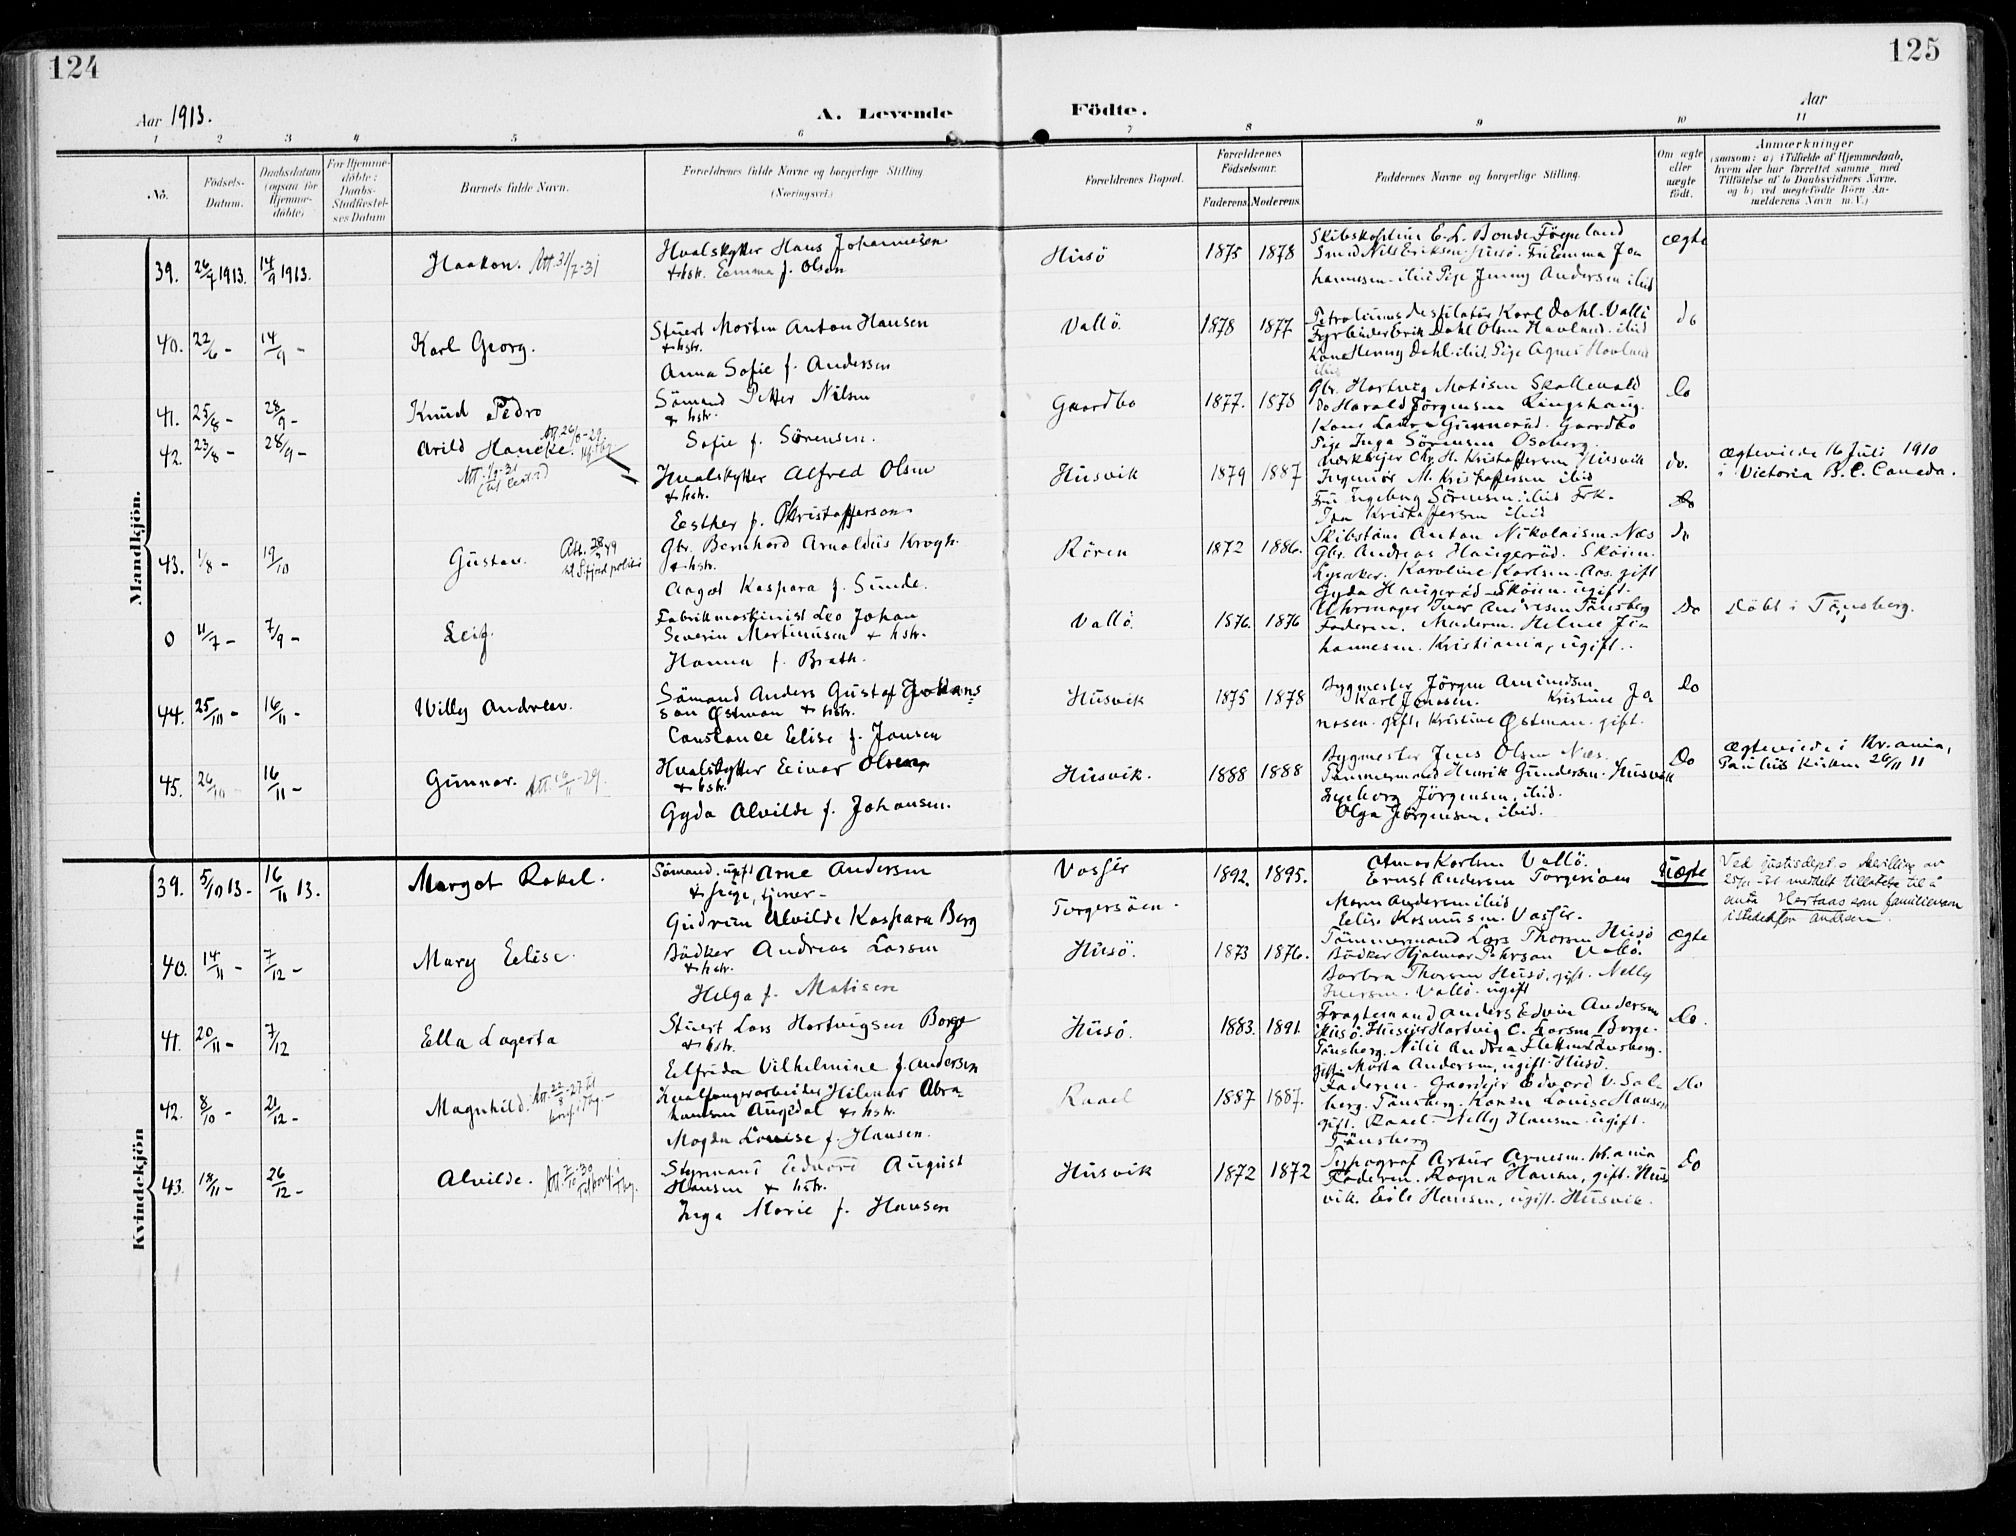 124
125
Aar 1913.
A. Levende
Födte.
Aar
1 2 3 4 5 6 7 8 9 10 11
No.
Födsels-
Datum.
Daabsdatum
(ogsaa for
Hjemme-
döbte)
For Hjemme-
döbte:
Daabs-
Stadfæstel-
ses Datum
Barnets fulde Navn.
Forældrenes fulde Navne og borgerlige Stilling
(Næringsvei.)
Forældrenes Bopæl.
Forældrenes
Födselsaar.
Faderens. Moderens.
Faddernes Navne og borgerlige Stilling.
Om ægte
eller
uægte
födt.
Anmærkninger
(saasom: a) i Tilfælde af Hjemmedaab,
hvem der har forrettet samme, med
Tilföielse af to Daabsvidners Navne,
og b) ved uegtefödte Börn An-
melderens Navn m.V.)
Mandkjön.
39. 26/7 1913. 14/9 1913. Haakon. Att. 31/7-31
Hvalskytter Hans Johannesen
& hstr. Emma f. Olsen
Husö 1875 1878
Skibskaptein E. L. Bonde Föyneland
Smed Nils Eriksen Husö. Fru Emma Jo
hannesen. ibid Pige Jenny Andersen ibid
ægte
40. 22/6 - 14/9 - Karl Georg.
Stuert Morten Anton Hansen
& hstr.
Anna Sofie f. Andersen
Vallö. 1878 1877
Petroliumsdestilatör Karl Dahl. Vallö
Fyrböder Erik Dahl Olsen Havland. ibid
Kone Henny Dahl. ibid. Pige Agnes Havland
ibid
do
41. 25/8 - 28/9 - Knud Pedro
Sömand Petter Nilsen
& hstr.
Sofie f. Sörensen.
Gaardbo 1877. 1878
Gbr. Hartvig Matisen Skallevald
do Harald Jörgensen Ringshaug.
Kone Laura Gunneröd. Gaardbo
Pige Inga Sörensen Oseberg.
Do
42. 23/8 - 28/9 - Arild Hancke.
Hvalskytter Alfred Olsen
& hstr.
Esther f. Christoffersen
Husvik 1879 1887
Værkseier Chr. H. Kristoffersen Husvik
Ingeniör M. Kristoffersen ibid
Fru Ingeborg Sörensen ibid Frk.
Kristoffersen ibid
do.
Do
Ægteviede 16 Juli 1910
i Victoria B. C. Canada.
43. 1/8 - 19/10 Gustav. Att. 28/ 49
Gbr. Bernhard Arnoldus Krogh.
& hstr.
Aagot Kaspara f. Sunde.
Rören 1872 1886.
Skibstöm. Anton Nikolaisen. Næs
Gbr. Andreas Haugeröd. Skóien.
Karoline Karlsen. Aas. gift
Gyda Haugeröd Skóien. ugift.
Do
0 11/7 - 7/9 - Leif
Fabrikmaskinist Leo Johan
Severin Martinusen & hstr.
Hanna f. Brath.
Vallö. 1876. 1876
Uhrmager Ivar Andresen Tönsberg
Faderen. Moderen. Helene Jo-
hannesen. Kristiania, ugift.
Do
Döbt i Tönsberg.
44. 25/10 - 16/11 - Willy Andreas.
Sömand Anders Gustaf Johans
son Östman & hstr.
Constance Elise f. Jansen
Husvik 1875 1878
Bygmester Jörgen Amundsen
Karl Jonasen. Kristine Jo
nasen. gift, Kristine Östman. gift.
Do
45. 26/10 - 16/11 - Gunnar. Att. 16/11-29.
Hvalskytter Einar Olsen
& hstr.
Gyda Alvilde f. Johansen.
Husvik. 1888 1888
Bygmester Jens Olsen Næs.
Tömmermand Henrik Gundersen. Husvik
Ingeborg Jörgensen, ibid.
Olga Jörgensen, ibid.
Do
Ægteviede i Kr.ania,
Paulus Kirken 26/11 11
Kvindekjön
39. 5/10 13 - 16/11 13. Margot Rakel.
Sömand. ugift Arne Andersen
& pige, tjener -
Gudrun Alvilde Kaspara Berg
Vasser
Torgersöen - 1892. 1895.
Karlsen Vallö.
Ernst Andersen Torgersöen
Maren Andersen ibid
Elise Rasmusen. Vasser.
Uægte
Ved justisdept.s bevilling av
25/11-31 meddelt tillatelse til å
anta Hortaas som familienavn
istedetfor Andersen.
40. 14/11 - 7/12 - Mary Elise.
Bödker Andreas Larsen
& hstr.
Helga f. Matisen
Husö. 1873 1876.
Tömmermand Lars Thorsen Husö
Bödker Hjalmar Vallö.
Barbra Thorsen Husö, gift. Nelly
Iversen. Vallö. ugift
ægte
41. 20/11 - 7/12 Ella Lagerta
Stuert Lars Hartvigsen Borge
& hstr.
Elfrida Vilhelmine f. Andersen
Husö. 1883. 1891.
Fragtemand Anders Edvin Andersen
Husö. Huseier Hartvig C. Larsen Borge.
Tönsberg. Nilie Andrea Tönsberg.
gift. Marta Andersen, ugift. Husö.
do.
42. 8/10 - 21/12 - Magnhild. Att. 22/8-27 til
konf. i Tbg. -
Hvalfangerarbeider Hilmar Abra-
hamsen Augedal & hstr.
Magda Louise f. Hansen.
Raael 1887 1887.
Faderen. Gaardeier Edvard V. Sol-
berg. Tönsberg. Konen Louise Hansen
gift. Raael. Nelly Hansen ugift.
Tönsberg
do
43. 18/11 - 26/12 - Alvilde. Att. 7/10-30
Til konf. i
Tbg.
Styrmand Edvard August
Hansen & hstr.
Inga Marie f. Hansen
Husvik 1872 1872
Typograf Artur Arnesen. Kr.ania
Faderen. Ragna Hansen, gift. Hus
vik. Eili Hansen, ugift. Husvik.
Do